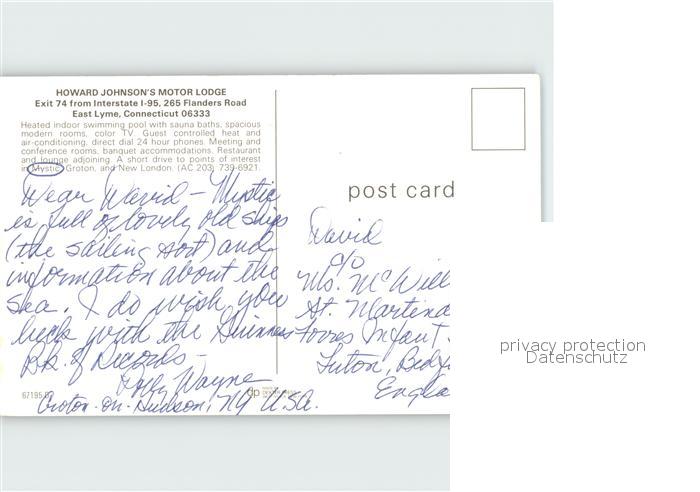 HOWARD JOHNSON'S MOTOR LODGE
Exit 74 from Interstate I-95, 265 Flanders Road
East Lyme, Connecticut 06333
Heated indoor swimming pool with sauna baths, spacious
modern rooms, color TV. Guest controlled heat and
air-conditioning, direct dial 24 hour phones. Meeting and
conference rooms, banquet accommodations. Restaurant
and lounge adjoining. A short drive to points of interest
in Mystic, Groton, and New London. (AC 203) 739-6921.
Dear David - Mystic
is full of lovely old ships
(the sailing sort) and
information about the
sea. I do wish you
luck with the Guinness
Bk. of Records -
Wayne
Croton-on-Hudson, NY U.S.A.
67195
dp
post card
David
c/o
Ms. McWill
St. Martin
Torres Infant
Luton, Bedf
Engla
privacy protection
Datenschutz